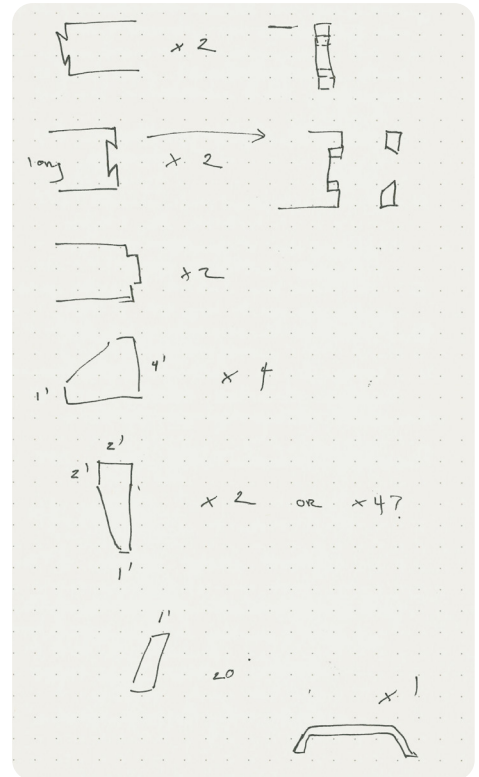 x 2
long
x 2
x 2
1' 4' x 4
2'
2'
x 2 OR x 4?
1'
1'
20
x 1